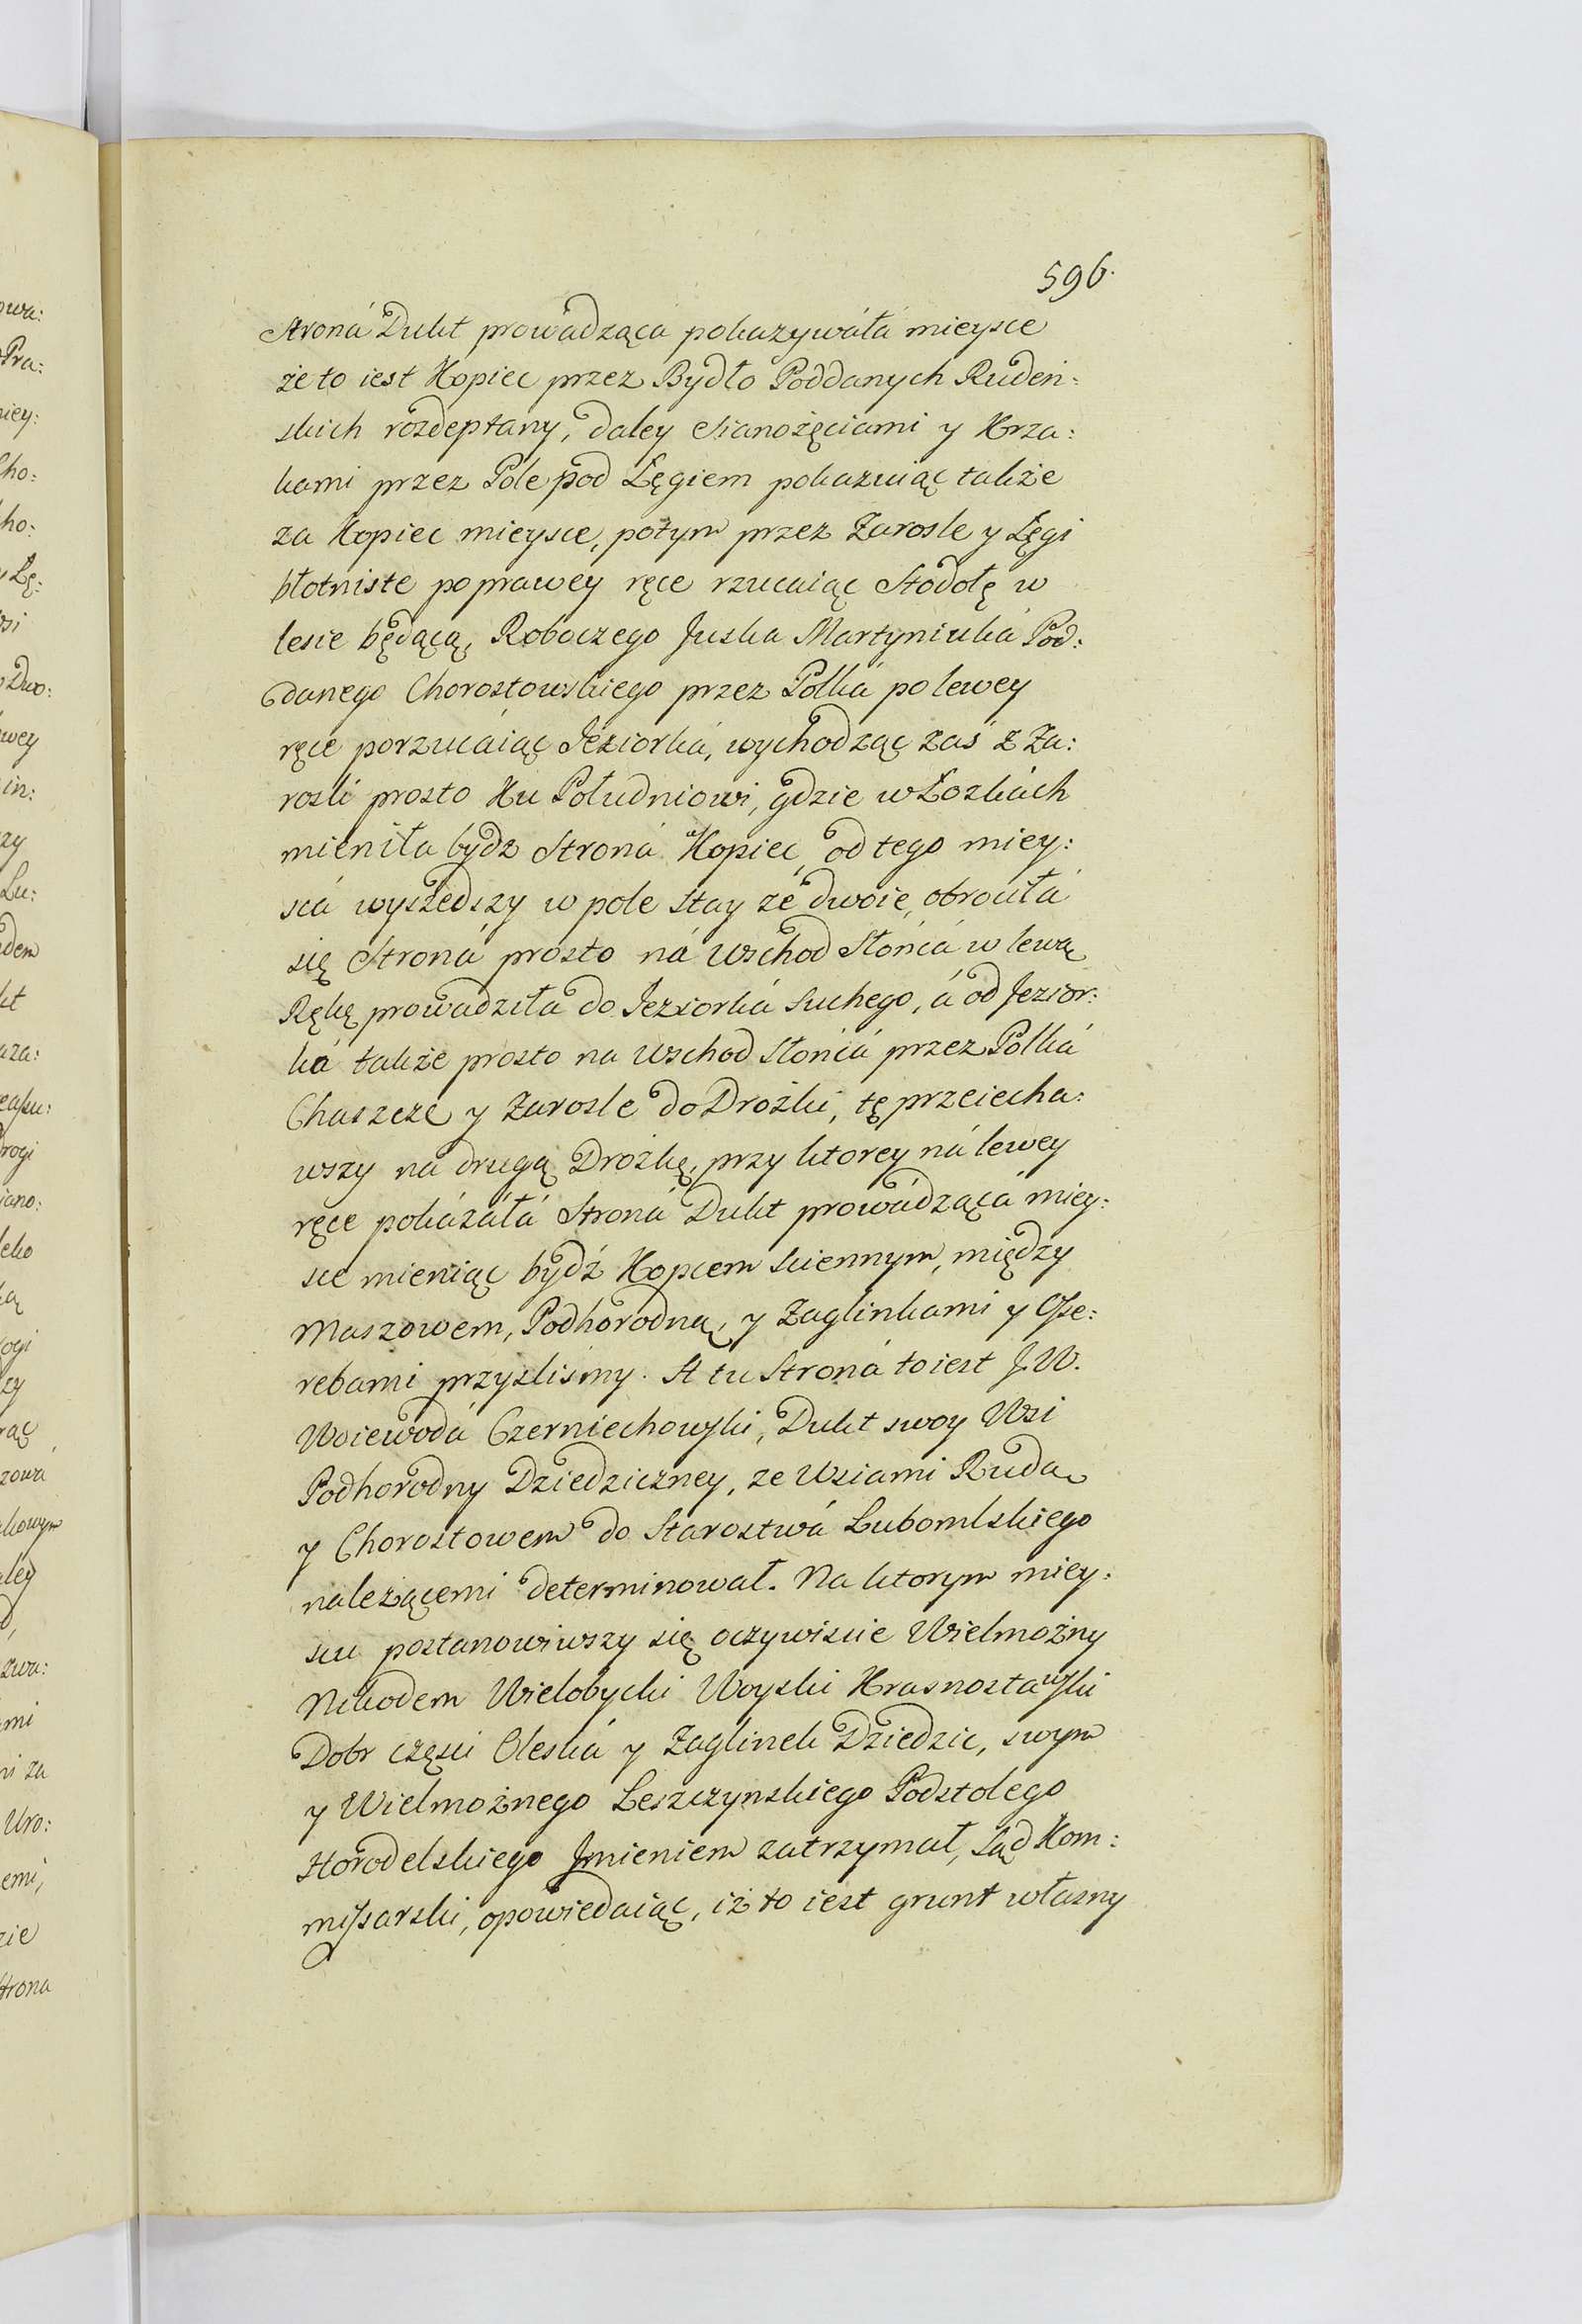 596.
Stroná Dukt prowadząca pokazywáłá mieysce
że to iest Kopiec przez Bydło Poddanych Rudeń:
skich rozdeptany, daley Sianożęciami y Krza:
kami przez Pole pod Łęgiem pokazuiąc także
za Kopiec mieysce, potym przez Zarosle y Łęgi
błotniste po prawey ręce rzucaiąc Stodołę w
lesie będącą, Roboczego Juska Martyniuká Pod:
danego Chorostowskiego przez Polká po lewey
ręce porzucáiąc Jeziorká, wychodząc zaś z Za:
rosli prosto Ku Południowi, gdzie w Łozkách
mieniła bydz Stroná Kopiec, od tego miey:
scá wyszedszy w pole stay ze dwoie, obrociłá
się Stroná prosto ná Wschod Słońcá w lewą
Rękę prowadziła do Jeziorká Suchego, á od Jezior:
ká także prosto na Wschod Słońcá przez Polká
Chaszcze y Zarosle do Drożki, tę przeiecha:
wszy na drugą Drożkę, przy ktorey ná lewey
ręce pokázáłá Stroná Dukt prowádzącá miey:
sce mieniąc bydź Kopcem sciennym, między
Maszowem, Podhorodną, y Zaglinkami y Ose:
rebami przyszlismy. A tu Stroná to iest J.W.
Woiewodá Czerniechowski, Dukt swoy Wsi
Podhorodny Dziedziczney, ze Wsiami Rudą
y Chorostowem do Starostwá Lubomlskiego
należącemi determinował. Na ktorym miey:
scu postanowiwszy się oczywiscie Wielmożny
Nikodem Wielobycki Woyski Krasnostawski
Dobr częsci Oleská y Zaglinek Dziedzic, swym
y Wielmożnego Leszczynskiego Podstolego
Horodelskiego Jmieniem zatrzymał, Sąd Kom:
missarski, opowiedaiąc, iż to iest grunt własny